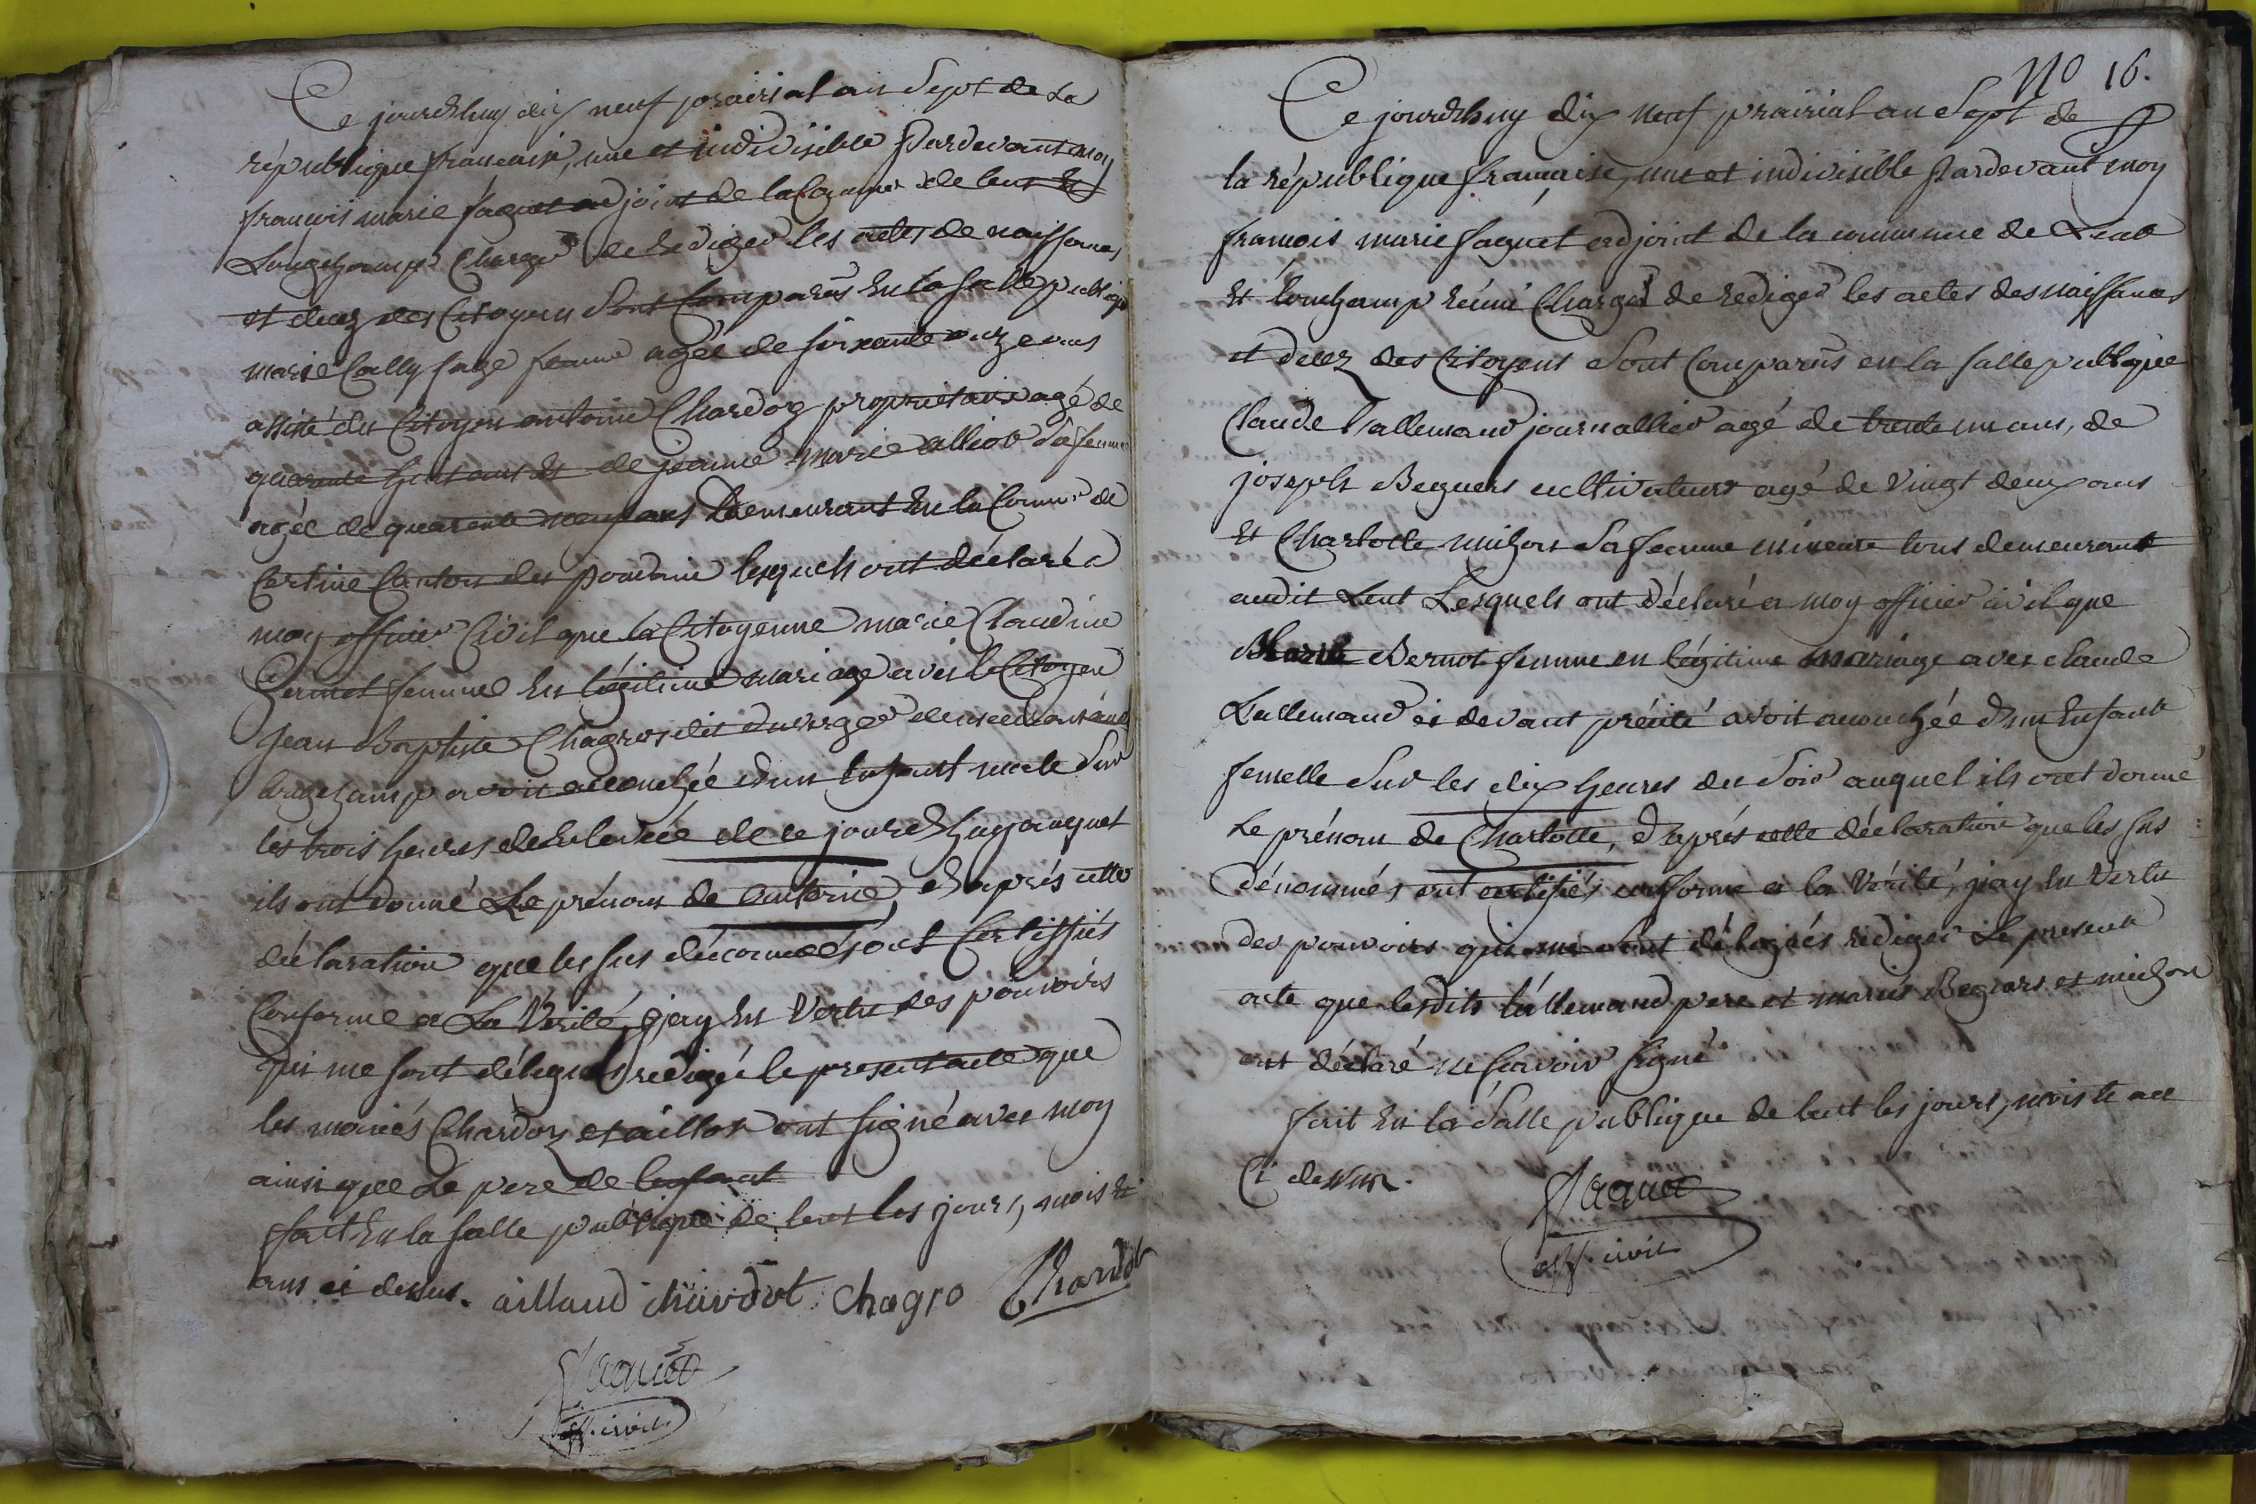 Ce jourdhuy dix neuf prairial an Sept de La
république française, une et indivisible Pardevant moy
françois marie faguet adjoint de la Comune de lent Et
Longchamp Chargé de Rediger les actes de naissances
et decez des Citoyens Sont Comparus En la Salle publique
marie Cally sage femme agée de soixante onze ans
assisté du Citoyen antoine Chardoz propriétaire agé de
quarante huit ans Et de jeanne marie alliot Sa femme
agée de quarante neuf ans Demeurant En la Comune de
Certine Canton de lesquels ont déclaré a
moy officier Civil que la Citoyenne marie Claudine
femme En légitime mariage avec le Citoyen
jean Baptiste Chagros dit duverger demeurant aud
longchamp avoit accouchée dun Enfant male Sur
les trois heures de Relevée de ce jourdhuy auquel
ils ont donné Le prénom de antoine, daprés cette
déclaration que les sus dénomés ont Certiffiés
Conforme a La Verité, jay En Vertu des pouvoirs
qui me sont délégués redigé le present acte que
les mariés Chardoz et aillot ont signé avec moy
ainsi que Le pere de lenfant
fait En la salle publique de lent les jours, mois Et
ans ci dessus. aillaud chardot chagro Chardot
faguet
off. civil
No 16.
Ce jourdhuy dix neuf prairial an Sept de
la république française, une et indivisible Pardevant moy
francois marie faguet adjoint de la commune de Lent
Et lonchamp réuni Chargé de rediger les actes des naissances
et decez des Citoyens Sont Comparus en la salle publique
Claude lallemand journallier agé de trente un ans, de
joseph Beguers cultivateur agé de Vingt deux ans
Et Charlotte michon Sa femme mineure tous demeurant
audit Lent Lesquels ont déclaré a moy officier civil que
Marie Bernot femme en légitime mariage avec claude
Lallemand ci devant précité avoit accouchée dun Enfant
femelle Sur les dix heures du Soir auquel ils ont donné
Le prénom de Charlotte, daprés cette déclaration que les sus
dénommés ont certifiés conforme a la Vérité, jay En Vertu
des pouvoirs qui me Sont délégués rediger Le present
acte que lesdits lallemand pere et mariés Beguers et michon
ont déclaré ne scavoir signé
fait En la Salle publique de lent les jours, mois et an
Ci dessus.
faguet
off. civil